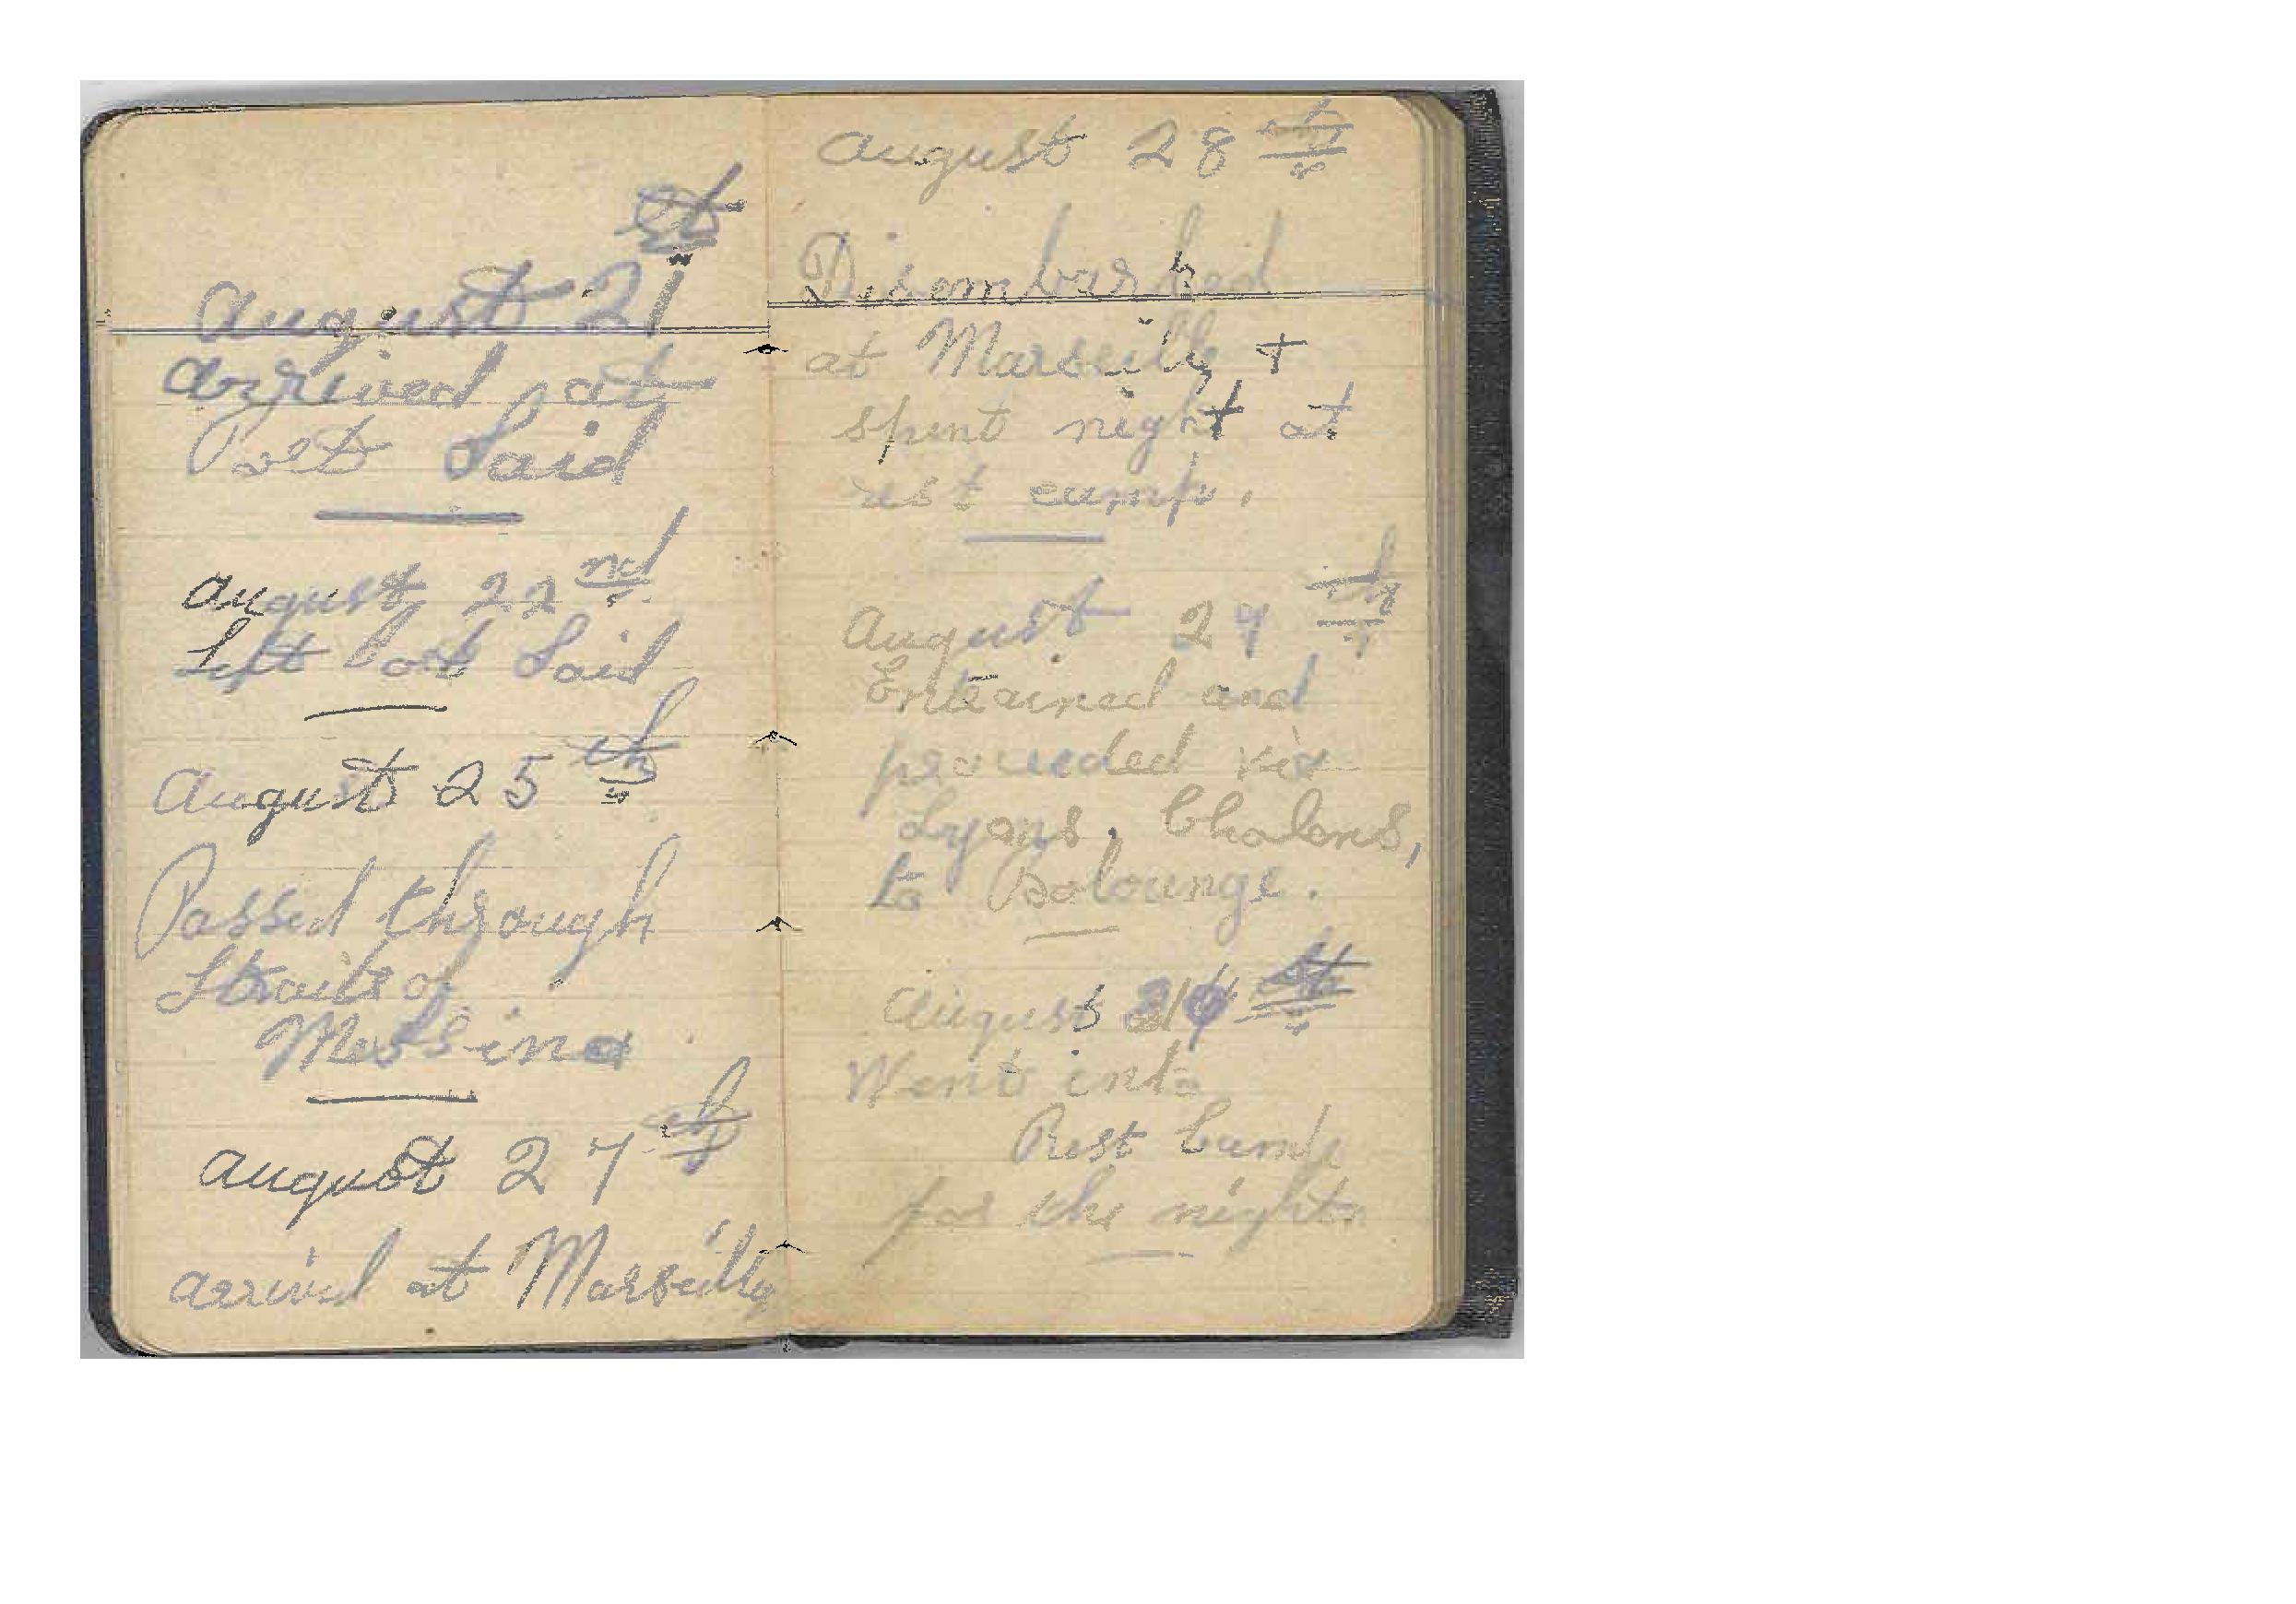 August 21st
Arrived at
Port Said
August 22nd
Left Port Said
August 25th
Passed through
Straits of
Messina
August 27th
arrived at Marseilles
August 28th
Disembarked
at Marseilles +
spent night at
rest camp.
August 29th
Entrained and
proceeded via
Lyons, Chalons,
to Bolounge.
August 31st
Went into
Rest Camp
for the night.